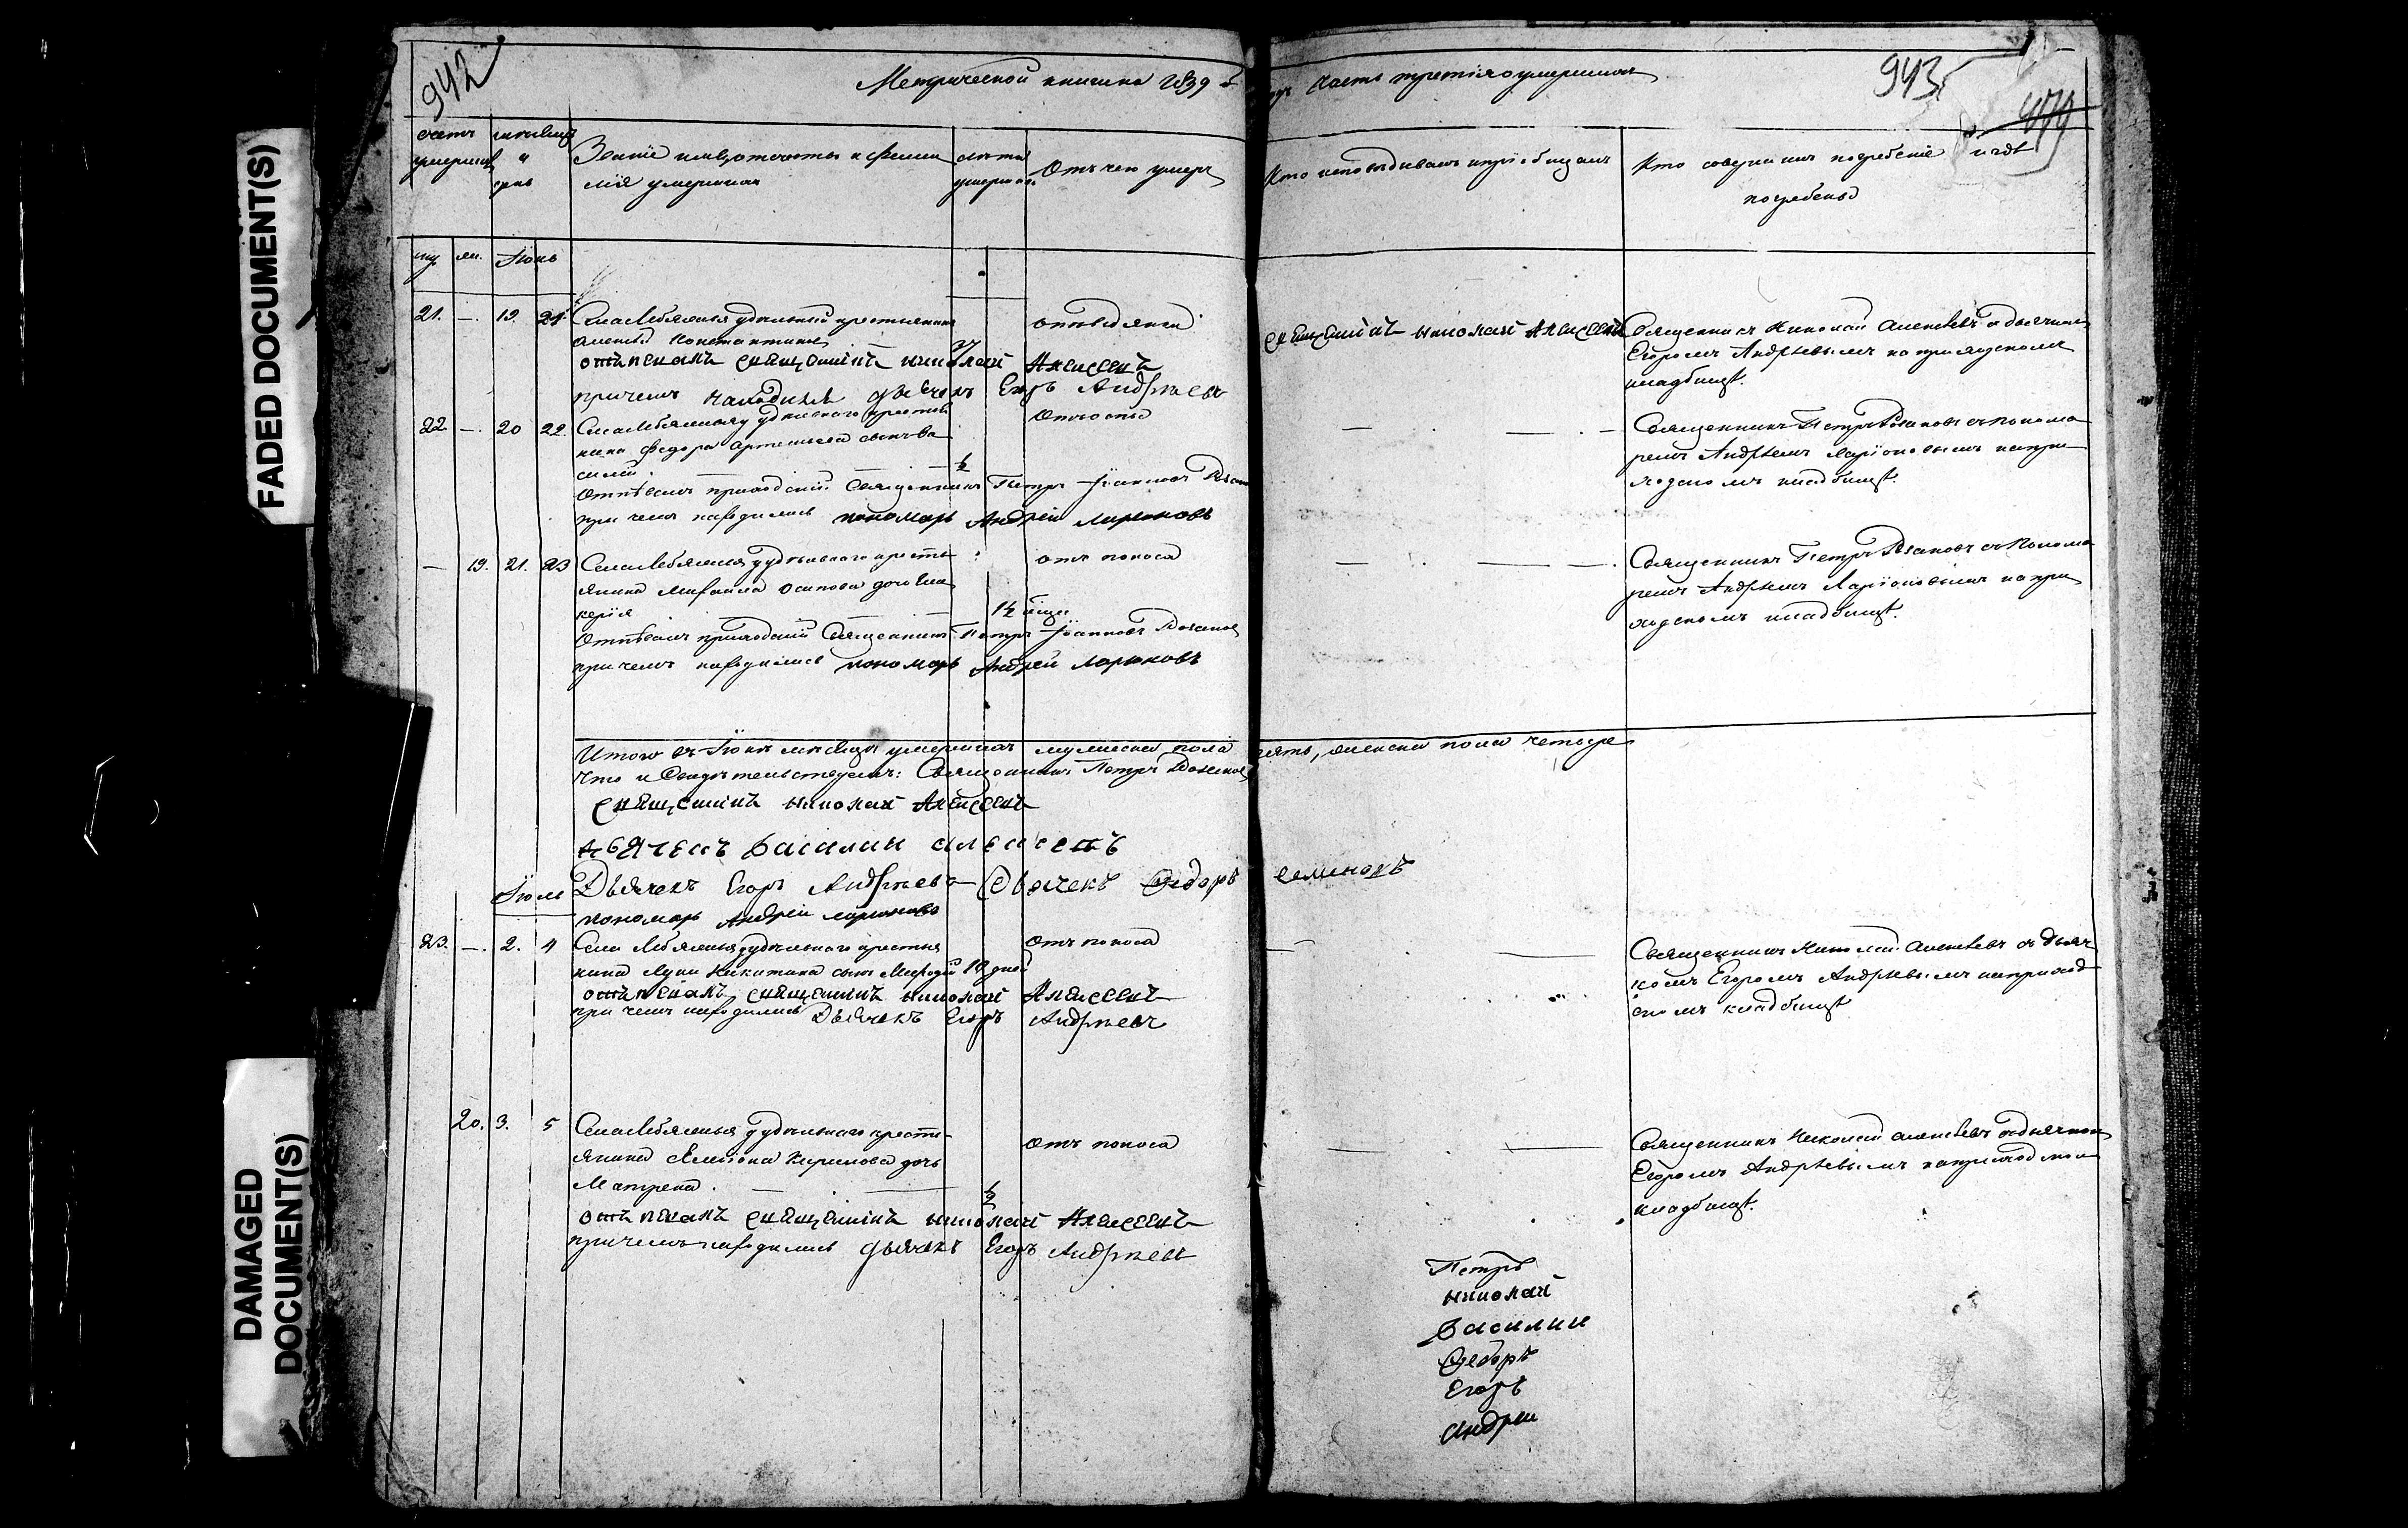 FADED DOCUMENT(S)
DAMAGED
DOCUMENT(S)
942
943
479
Метрической книги на 1839 й годъ часть третія о умершихъ
счетъ
умершихъ
мѣсяцъ
и
день
Званіе имя, отчество и фами
лія умершихъ
лѣта
умершаго
Отъ чего умеръ
Кто исповѣдывалъ и пріобщалъ
Кто совершилъ погребеніе и гдѣ
погребены
му. же. Іюнь
21. — 19. 21. Села Лебяжья удѣльный крестьянинъ
Алексѣй Константиновъ
отпевалъ священникъ николай Алексеевъ
причемъ находился дьячекъ Егоръ Андреевъ
священникъ николай Алексеевъ
Священникъ Николай Алексѣевъ с дьячкомъ
Егоромъ Андрѣевымъ на приходскомъ
кладбищѣ.
22 — 20 22. Села Лебяжья удѣльного крестья
нина Федора Артемьева сынъ Ва
силій. ½
Отпѣвалъ приходскій Священникъ Петръ Іоанновъ
при чемъ находились пономарь Андрей Ларионовъ
— —
Священникъ Петръ Розановъ съ понома
ремъ Андреемъ Ларіоновымъ на при
ходскомъ кладбищѣ.
— 19. 21. 23 Села Лебяжья удѣльнаго кресть отъ поноса
янина Михаила Осипова дочь Гли
керія 1½
Отпѣвалъ приходскій Священникъ Петръ Іоанновъ Розановъ
при чемъ находились пономарь Андрей Ларионовъ
— —
Священникъ Петръ Розановъ съ Понома
ремъ Андреемъ Ларіоновымъ на при
ходскомъ кладбищѣ.
Итого въ Іюнѣ мѣсяцѣ умершихъ мужеска пола пять, женска пола четыре
Что и свидѣтельствуемъ: Священникъ Петръ Розановъ
священникъ николай Алексеевъ
дьячекъ василий алексеевъ
Дьячекъ Егоръ Андреевъ Дьячекъ Федоръ семеновъ
пономарь Андрей ларионовъ
Іюль
23. — 2. 4 Села Лебяжья удѣльнаго крестья отъ поноса
нина Луки Никитина сынъ Мефодій 12 дней
отпевалъ священникъ николай Алексеевъ
при чемъ находились Дьячекъ Егоръ Андреевъ
— —
Священникъ Николай Алексѣевъ съ дьяч
комъ Егоромъ Андрѣевымъ на приход
скомъ кладбищѣ
20. 3. 5 Села Лебяжья удѣльнаго кресть отъ поноса
янина Семіона Кирилова дочь
Матрена. ½
отпевалъ священникъ николай Алексеевъ
причемъ находились дьячекъ Егоръ Андреевъ
— —
Священникъ Николай Алексѣевъ с дьячкомъ
Егоромъ Андрѣевымъ на приходскомъ
кладбищѣ.
Петръ
николай
василии
Федоръ
Егоръ
Андреи